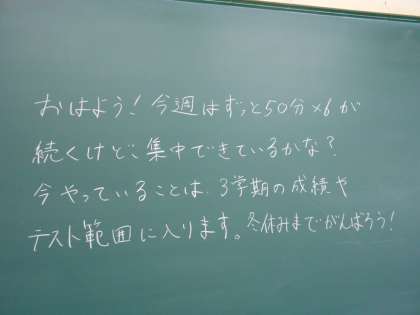 おはよう！今週はずっと50分×6が
続くけど、集中できているかな？
今やっていることは、3学期の成績や
テスト範囲に入ります。冬休みまでがんばろう！